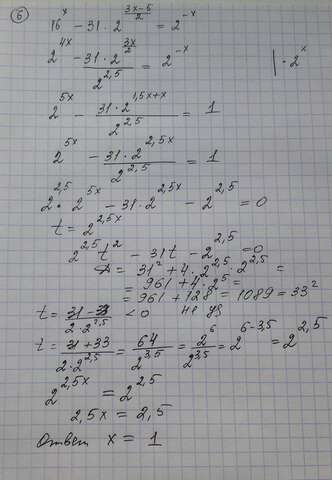 6
16^x - 31 · 2^((3x-5)/2) = 2^(-x)
2^(4x) - (31 · 2^(3x/2))/(2^(2,5)) = 2^(-x) | · 2^x
2^(5x) - (31 · 2^(1,5x+x))/(2^(2,5)) = 1
2^(5x) - (31 · 2^(2,5x))/(2^(2,5)) = 1
2^(2,5) · 2^(5x) - 31 · 2^(2,5x) - 2^(2,5) = 0
t = 2^(2,5x)
2^(2,5) t^2 - 31t - 2^(2,5) = 0
D = 31^2 + 4 · 2^(2,5) · 2^(2,5) =
= 961 + 4 · 2^5 =
= 961 + 128 = 1089 = 33^2
t = (31 - 33)/(2 · 2^(2,5)) < 0 не уд
t = (31 + 33)/(2 · 2^(2,5)) = 64/(2^(3,5)) = 2^6/(2^(3,5)) = 2^(6-3,5) = 2^(2,5)
2^(2,5x) = 2^(2,5)
2,5x = 2,5
Ответ x = 1